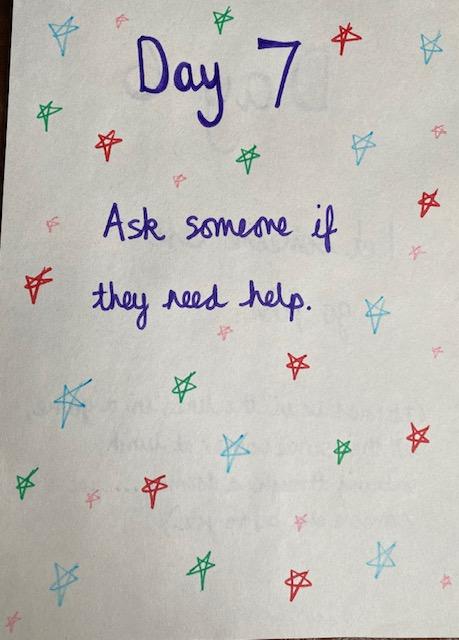 Day 7
Ask someone if
they need help.